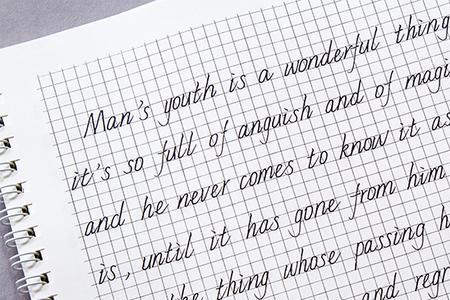 Man's youth is a wonderful thing
it's so full of anguish and of magi
and he never comes to know it as
is, until it has gone from him
the thing whose passing h
and regr